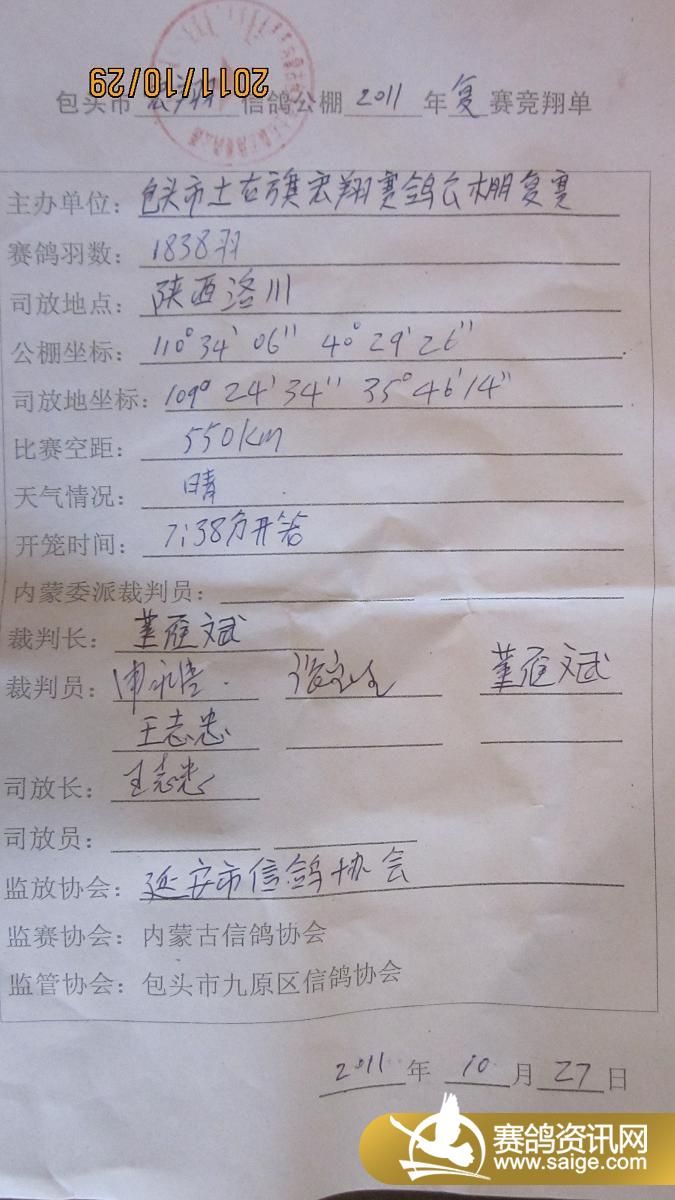 2011/10/29
包头市宏翔信鸽公棚2011年复赛竞翔单
主办单位：包头市土右旗宏翔赛鸽公棚复赛
赛鸽羽数：1838羽
司放地点：陕西洛川
公棚坐标：110°34′06″ 40°29′26″
司放地坐标：109°24′34″ 35°46′14″
比赛空距：550km
天气情况：晴
开笼时间：7:38分开笼
内蒙委派裁判员：
裁判长：董雁文斌
裁判员： 董雁文斌
王志忠
司放长：王志忠
司放员：
监放协会：延安市信鸽协会
监赛协会：内蒙古信鸽协会
监管协会：包头市九原区信鸽协会
2011年10月27日
赛鸽资讯网
www.saige.com